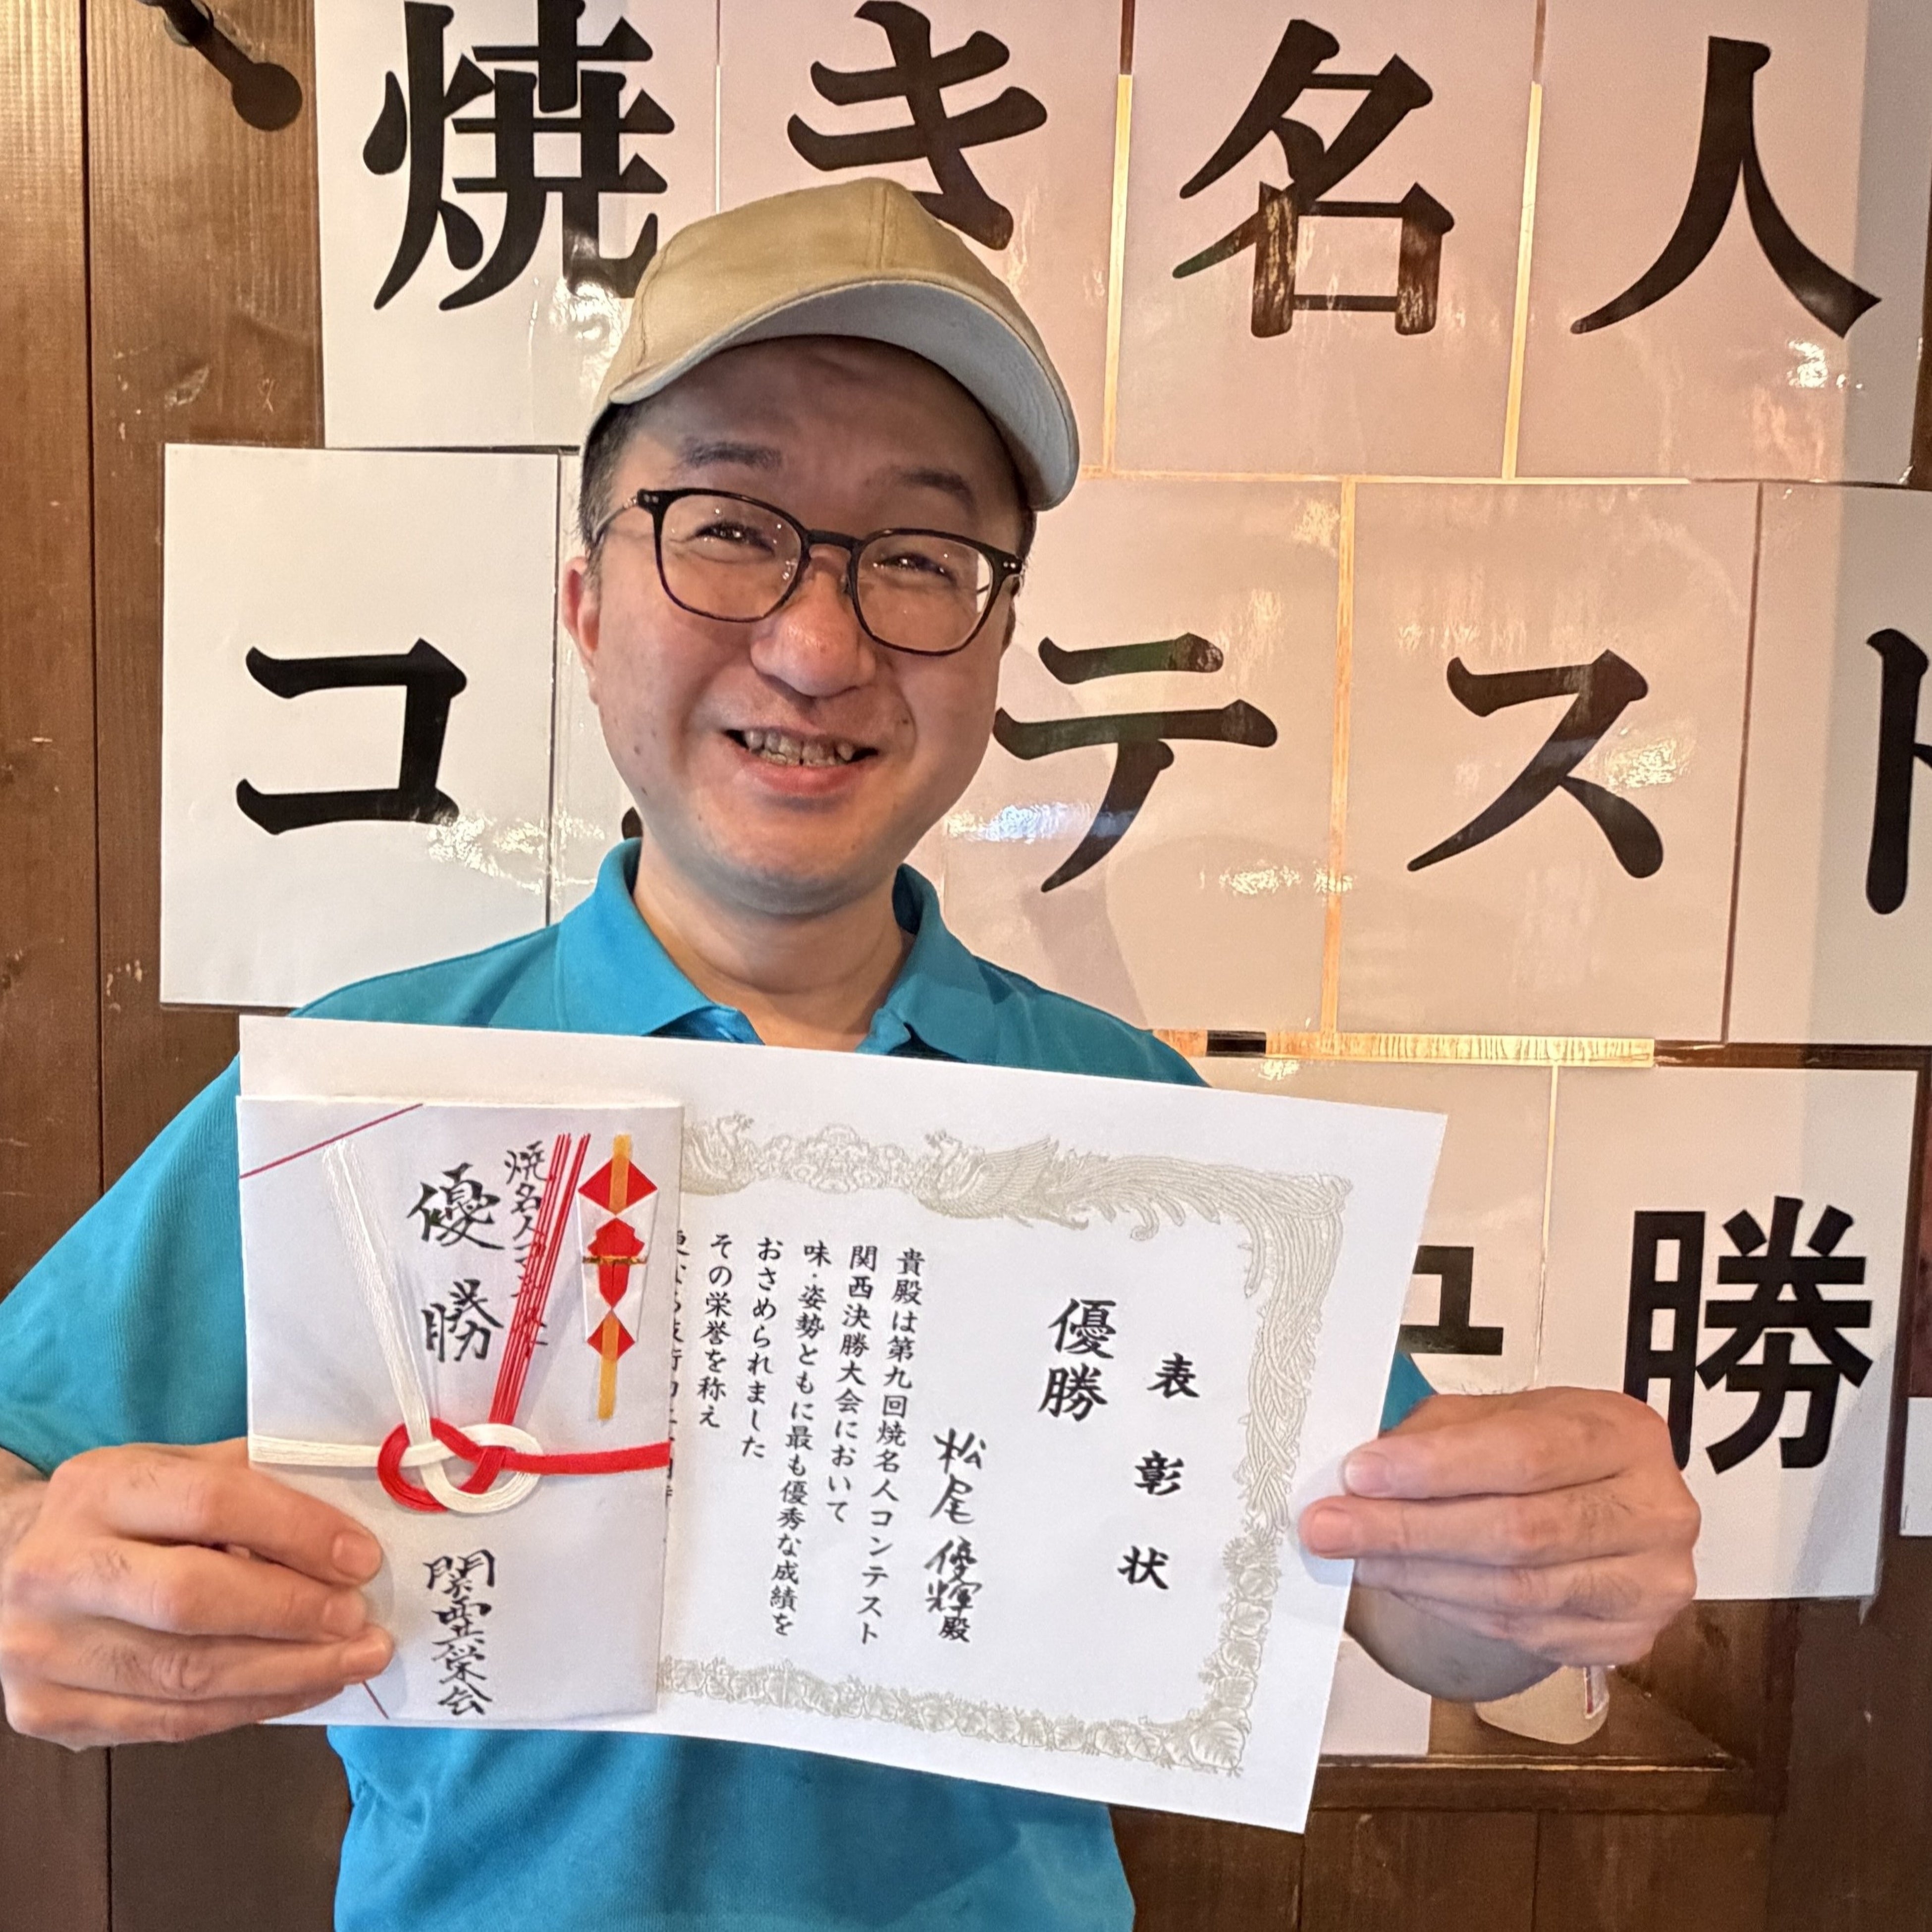 焼き名人
コ
テスト
勝
表彰状
優勝
松尾優輝殿
貴殿は第九回焼名人コンテスト
関西決勝大会において
味・姿勢ともに最も優秀な成績を
おさめられました
その栄誉を称え
焼名人コンテスト
優勝
関西栄会